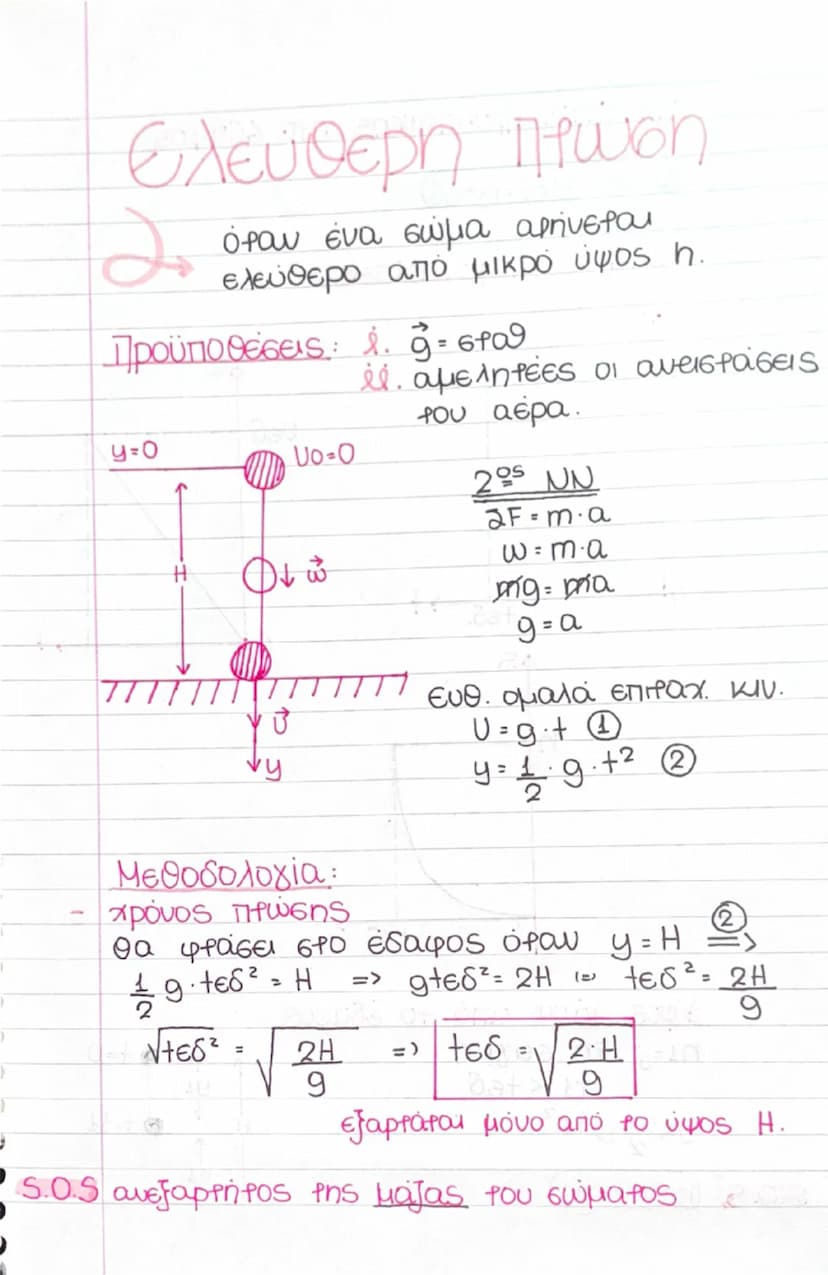 Ελεύθερη πτώση
όταν ένα σώμα αφήνεται
ελεύθερο από μικρό ύψος h.
Προϋποθέσεις: i. g⃗ = σταθ
ii. αμελητέες οι αντιστάσεις
του αέρα.
y=0
U0=0
H
w⃗
U⃗
y
2ος NN
ΣF = m·a
w = m·a
mg = ma
g = a
ευθ. ομαλά επιταχ. κιν.
U = g·t ①
y = 1/2 · g · t² ②
Μεθοδολογία:
- χρόνος πτώσης
θα φτάσει στο έδαφος όταν y = H ②=>
1/2 g · tεδ² = H => gtεδ² = 2H => tεδ² = 2H/g
√tεδ² = √2H/g => tεδ = √2·H/g
εξαρτάται μόνο από το ύψος H.
S.O.S ανεξαρτήτως της μάζας του σώματος